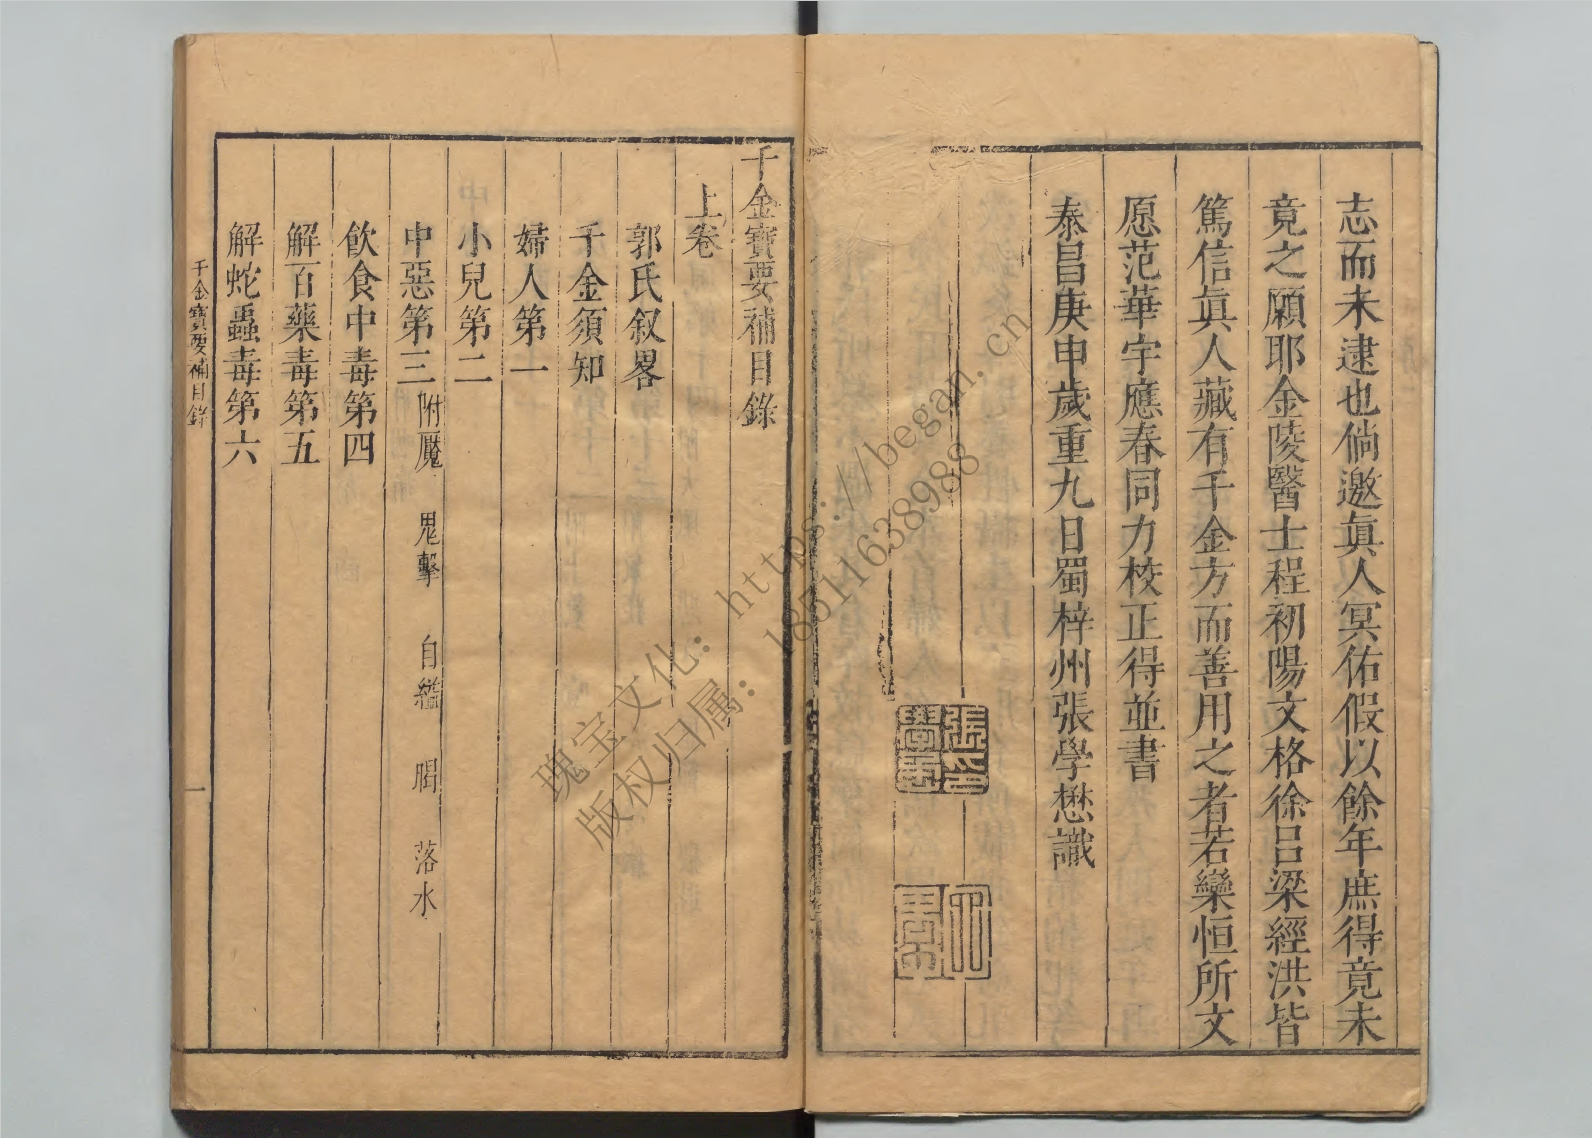 志而未逮也倘邀眞人冥佑假以餘年庶得竟未
竟之願耶金陵醫士程初陽文格徐呂梁經洪皆
篤信眞人藏有千金方而善用之者若欒恒所文
愿范華宇應春同力校正得並書
泰昌庚申歲重九日蜀梓州張學懋識
千金寶要補目錄
上卷
郭氏叙畧
千金須知
婦人第一
小兒第二
中惡第三 附魘 鬼擊 自縊 暍 落水
飲食中毒第四
解百藥毒第五
解蛇蟲毒第六
千金寶要補目錄 一
瑰宝文化：https://began.cn
版权归属：18511638988